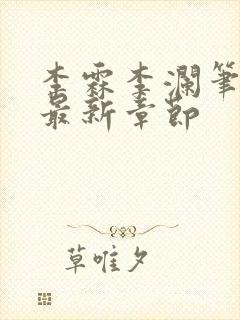 李霖李澜笔
最新章节
草唯夕